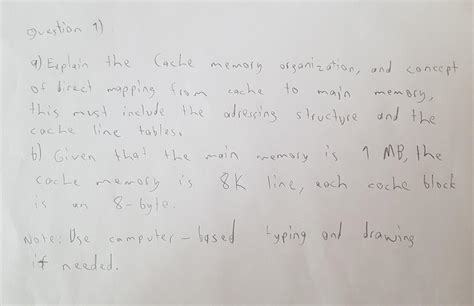 question 1)
a) Explain the Cache memory organization, and concept
of direct mapping from cache to main memory,
this must include the adressing structure and the
cache line tables.
b) Given that the main memory is 1 MB, the
cache memory is 8K line, each cache block
is an 8-byte.
Note: Use computer-based typing and drawing
if needed.